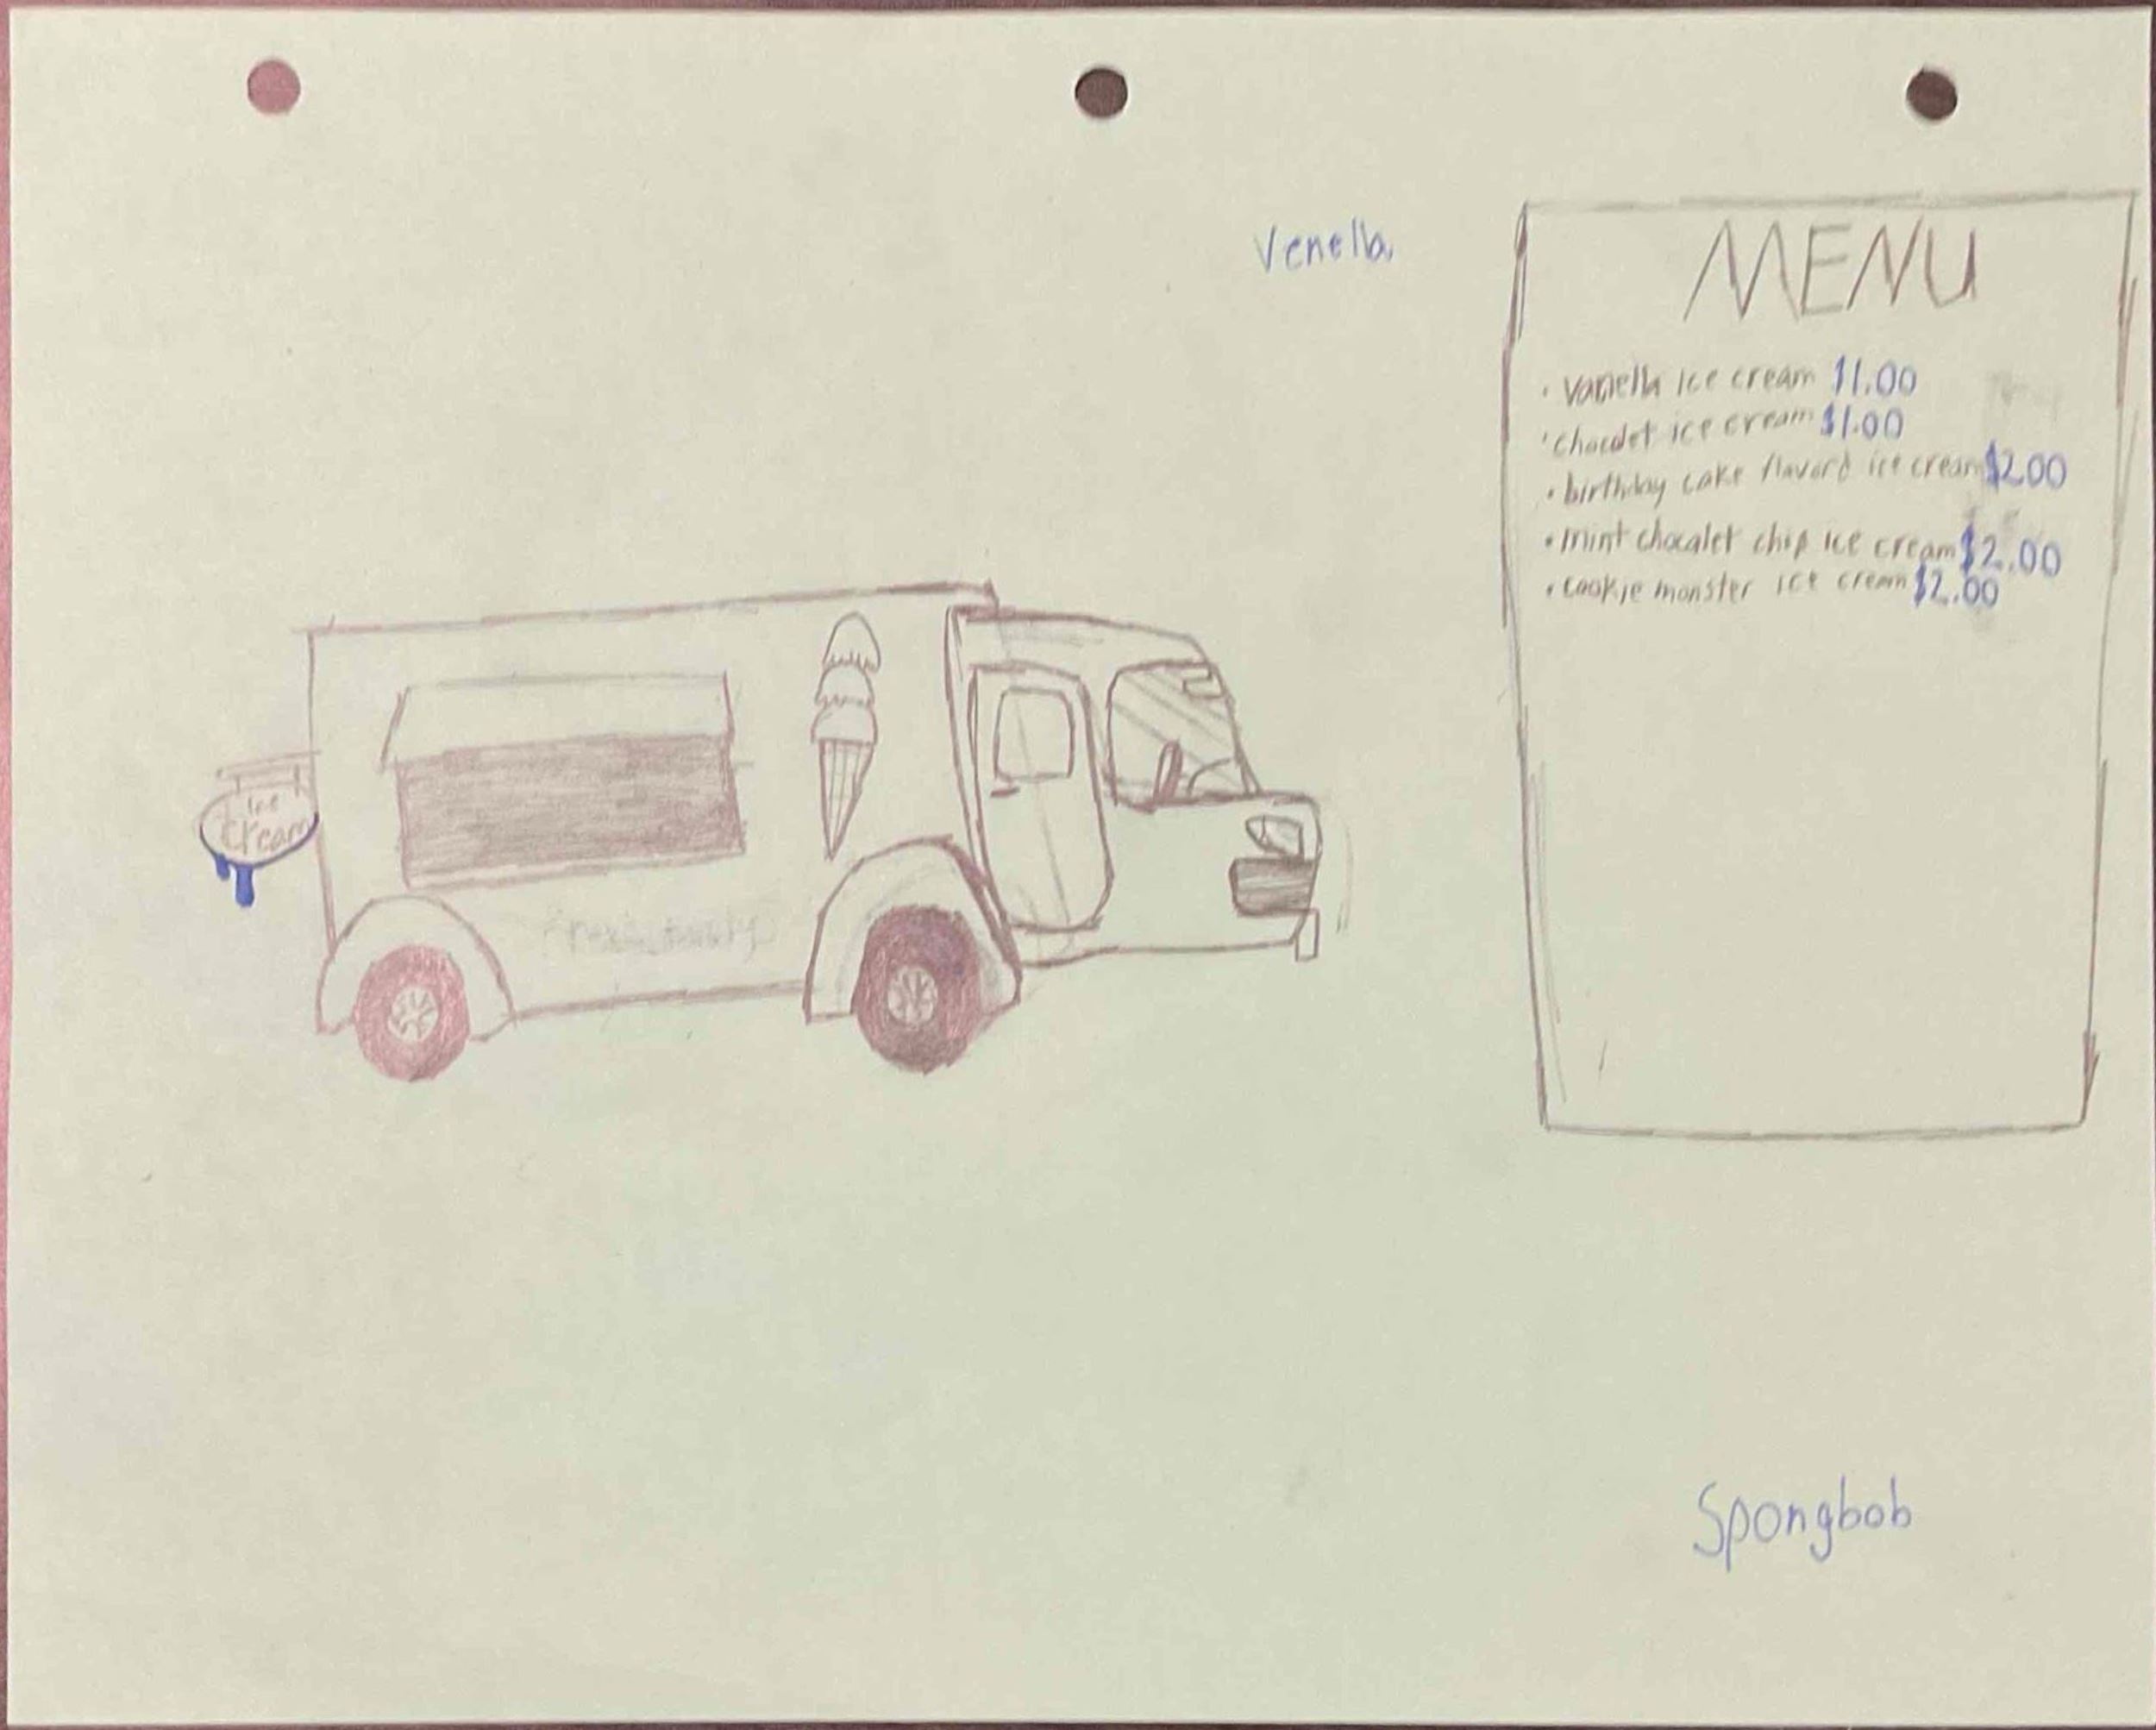 Venella
MENU
• vanella ice cream $1.00
• chocalet ice cream $1.00
• birthday cake flavord ice cream $2.00
• mint chocalet chip ice cream $2.00
• cookie monster ice cream $2.00
Ice
Cream
Spongbob